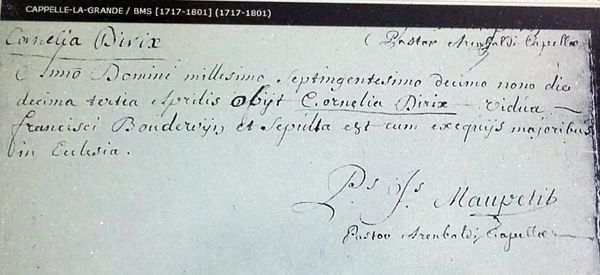 CAPPELLE-LA-GRANDE / BMS [1717-1801] (1717-1801)
Cornelia Dirix
Pastor Arenbaldi Capellae
Anno Domini millesimo Septingentesimo decimo nono die
decima tertia Aprilis obijt Cornelia Dirix vidua
francisci Bouderwijn et Sepulta est cum exequijs majoribus
in Eclesia.
P. Js Maupetit
Pastor Arenbaldi Capellae